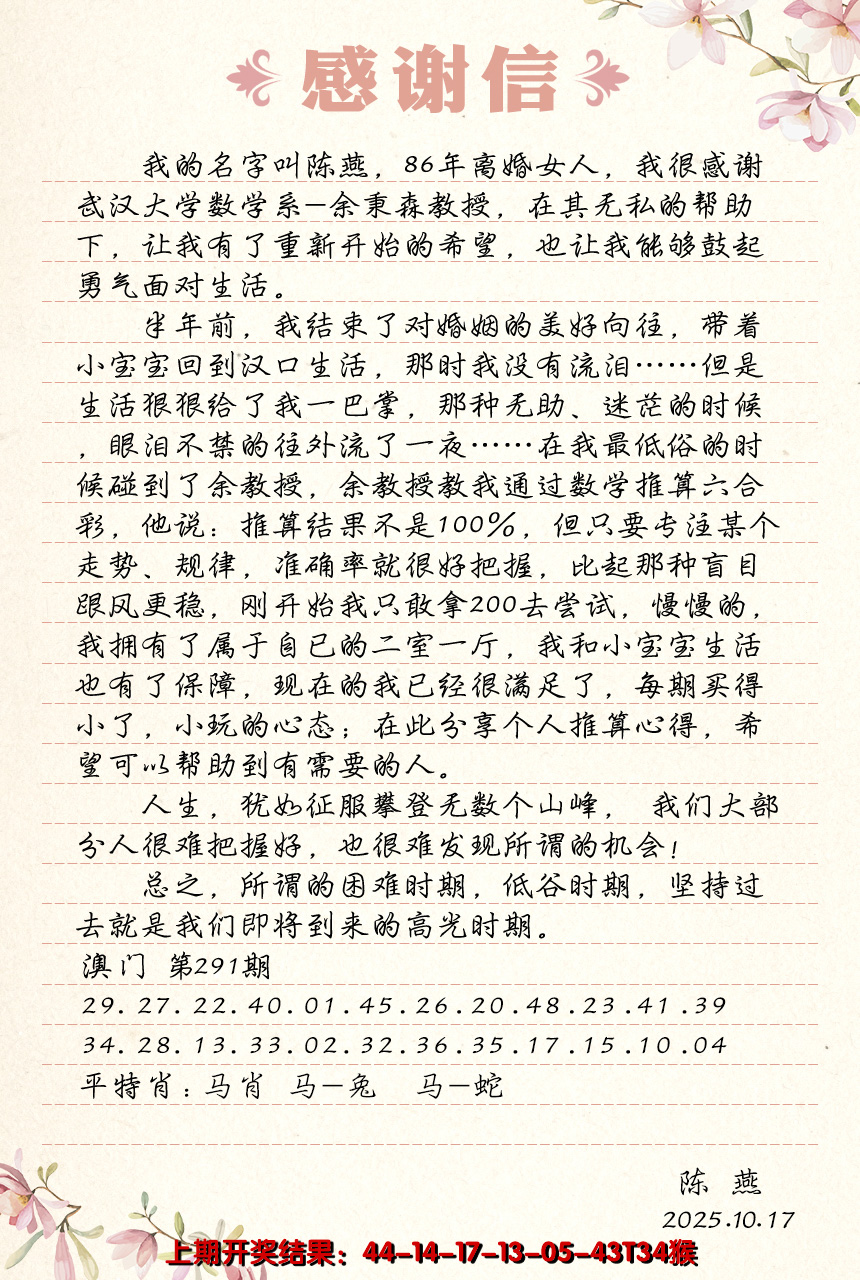 感谢信
我的名字叫陈燕，86年离婚女人，我很感谢
武汉大学数学系—余秉森教授，在其无私的帮助
下，让我有了重新开始的希望，也让我能够鼓起
勇气面对生活。
半年前，我结束了对婚姻的美好向往，带着
小宝宝回到汉口生活，那时我没有流泪……但是
生活狠狠给了我一巴掌，那种无助、迷茫的时候
，眼泪不禁的往外流了一夜……在我最低俗的时
候碰到了余教授，余教授教我通过数学推算六合
彩，他说：推算结果不是100%，但只要专注某个
走势、规律，准确率就很好把握，比起那种盲目
跟风更稳，刚开始我只敢拿200去尝试，慢慢的，
我拥有了属于自已的二室一厅，我和小宝宝生活
也有了保障，现在的我已经很满足了，每期买得
小了，小玩的心态；在此分享个人推算心得，希
望可以帮助到有需要的人。
人生，犹如征服攀登无数个山峰， 我们大部
分人很难把握好，也很难发现所谓的机会！
总之，所谓的困难时期，低谷时期，坚持过
去就是我们即将到来的高光时期。
澳门 第291期
29.27.22.40.01.45.26.20.48.23.41.39
34.28.13.33.02.32.36.35.17.15.10.04
平特肖：马肖 马—兔 马—蛇
陈 燕
2025.10.17
上期开奖结果：44-14-17-13-05-43T34猴